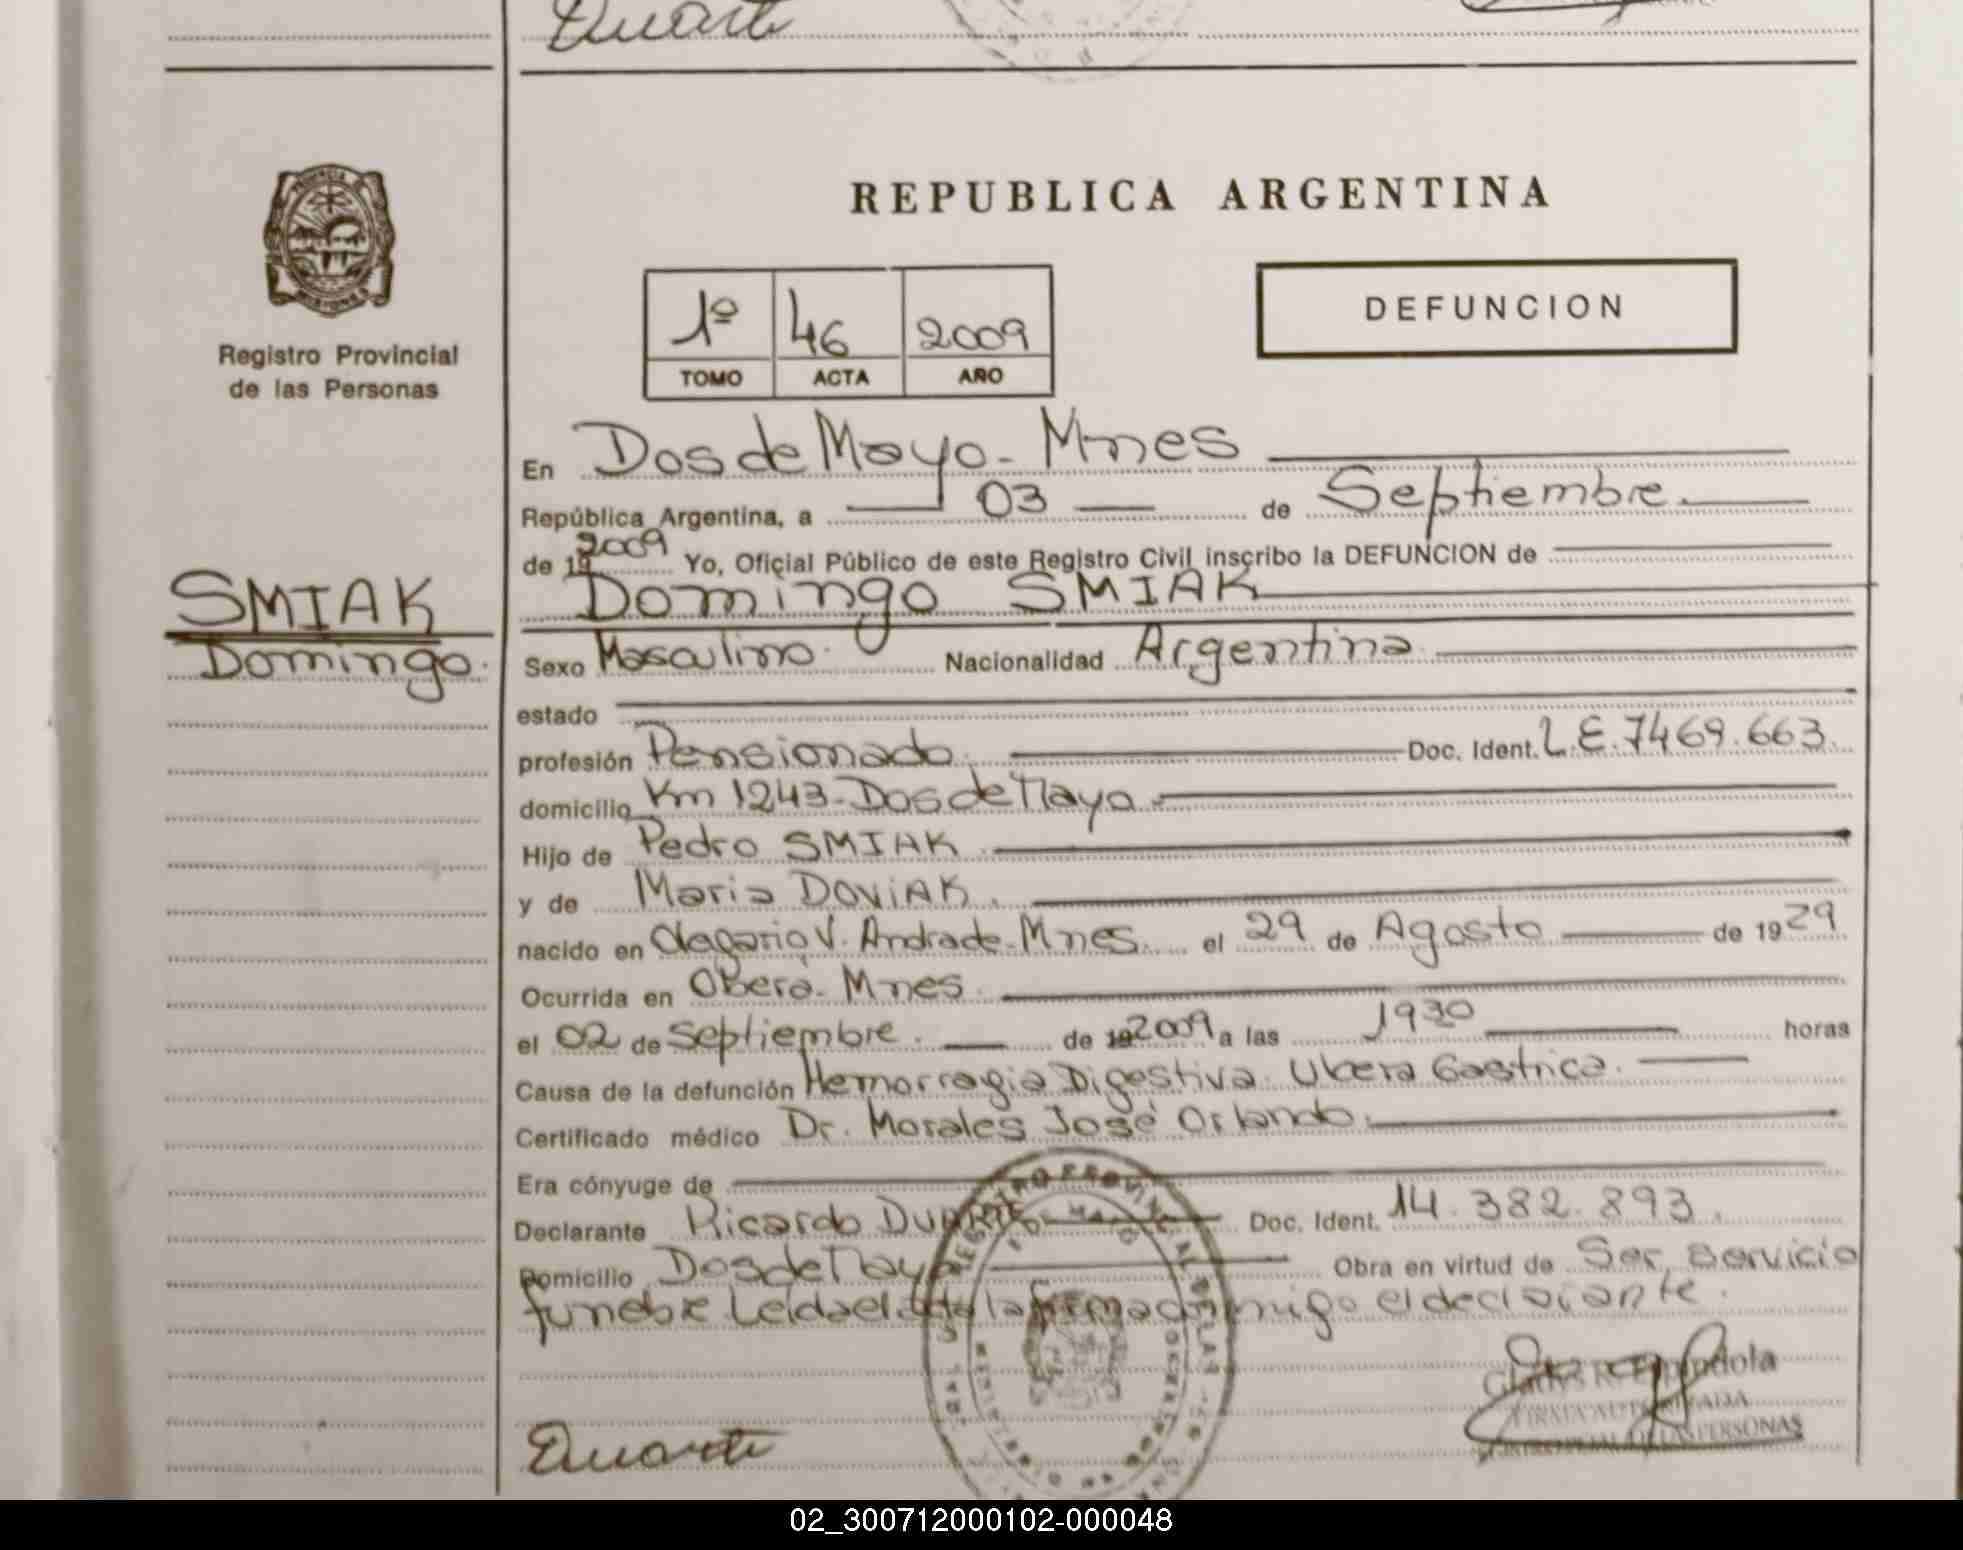 Duarte
PROVINCIA DE
MISIONES
Registro Provincial
de las Personas
REPUBLICA ARGENTINA
1º 46 2009
TOMO ACTA AÑO
DEFUNCION
En Dos de Mayo - Mnes
República Argentina, a 03 de Septiembre.
de 19 2009 Yo, Oficial Público de este Registro Civil inscribo la DEFUNCION de
SMIAK
Domingo.
Domingo SMIAK
Sexo Masculino. Nacionalidad Argentina.
estado
profesión Pensionado. Doc. Ident. L.E. 7469.663.
domicilio Km 1243 - Dos de Mayo.
Hijo de Pedro SMIAK.
y de Maria DOViAK.
nacido en Olegario V. Andrade - Mnes. el 29 de Agosto de 1929
Ocurrida en Oberá - Mnes.
el 02 de Septiembre. de 19 2009 a las 1930 horas
Causa de la defunción Hemorragia Digestiva. Ulcera Gastrica.
Certificado médico Dr. Morales José Orlando.
Era cónyuge de
Declarante Ricardo DUARTE Doc. Ident. 14.382.893.
Domicilio Dos de Mayo Obra en virtud de Ser servicio
funebre Leida el acta la firma conmigo el declarante.
REGISTRO PROVINCIAL DE LAS
DOS DE MAYO
Duarte
Gladys R.
FIRMA AUTORIZADA
DE LAS PERSONAS
02_300712000102-000048